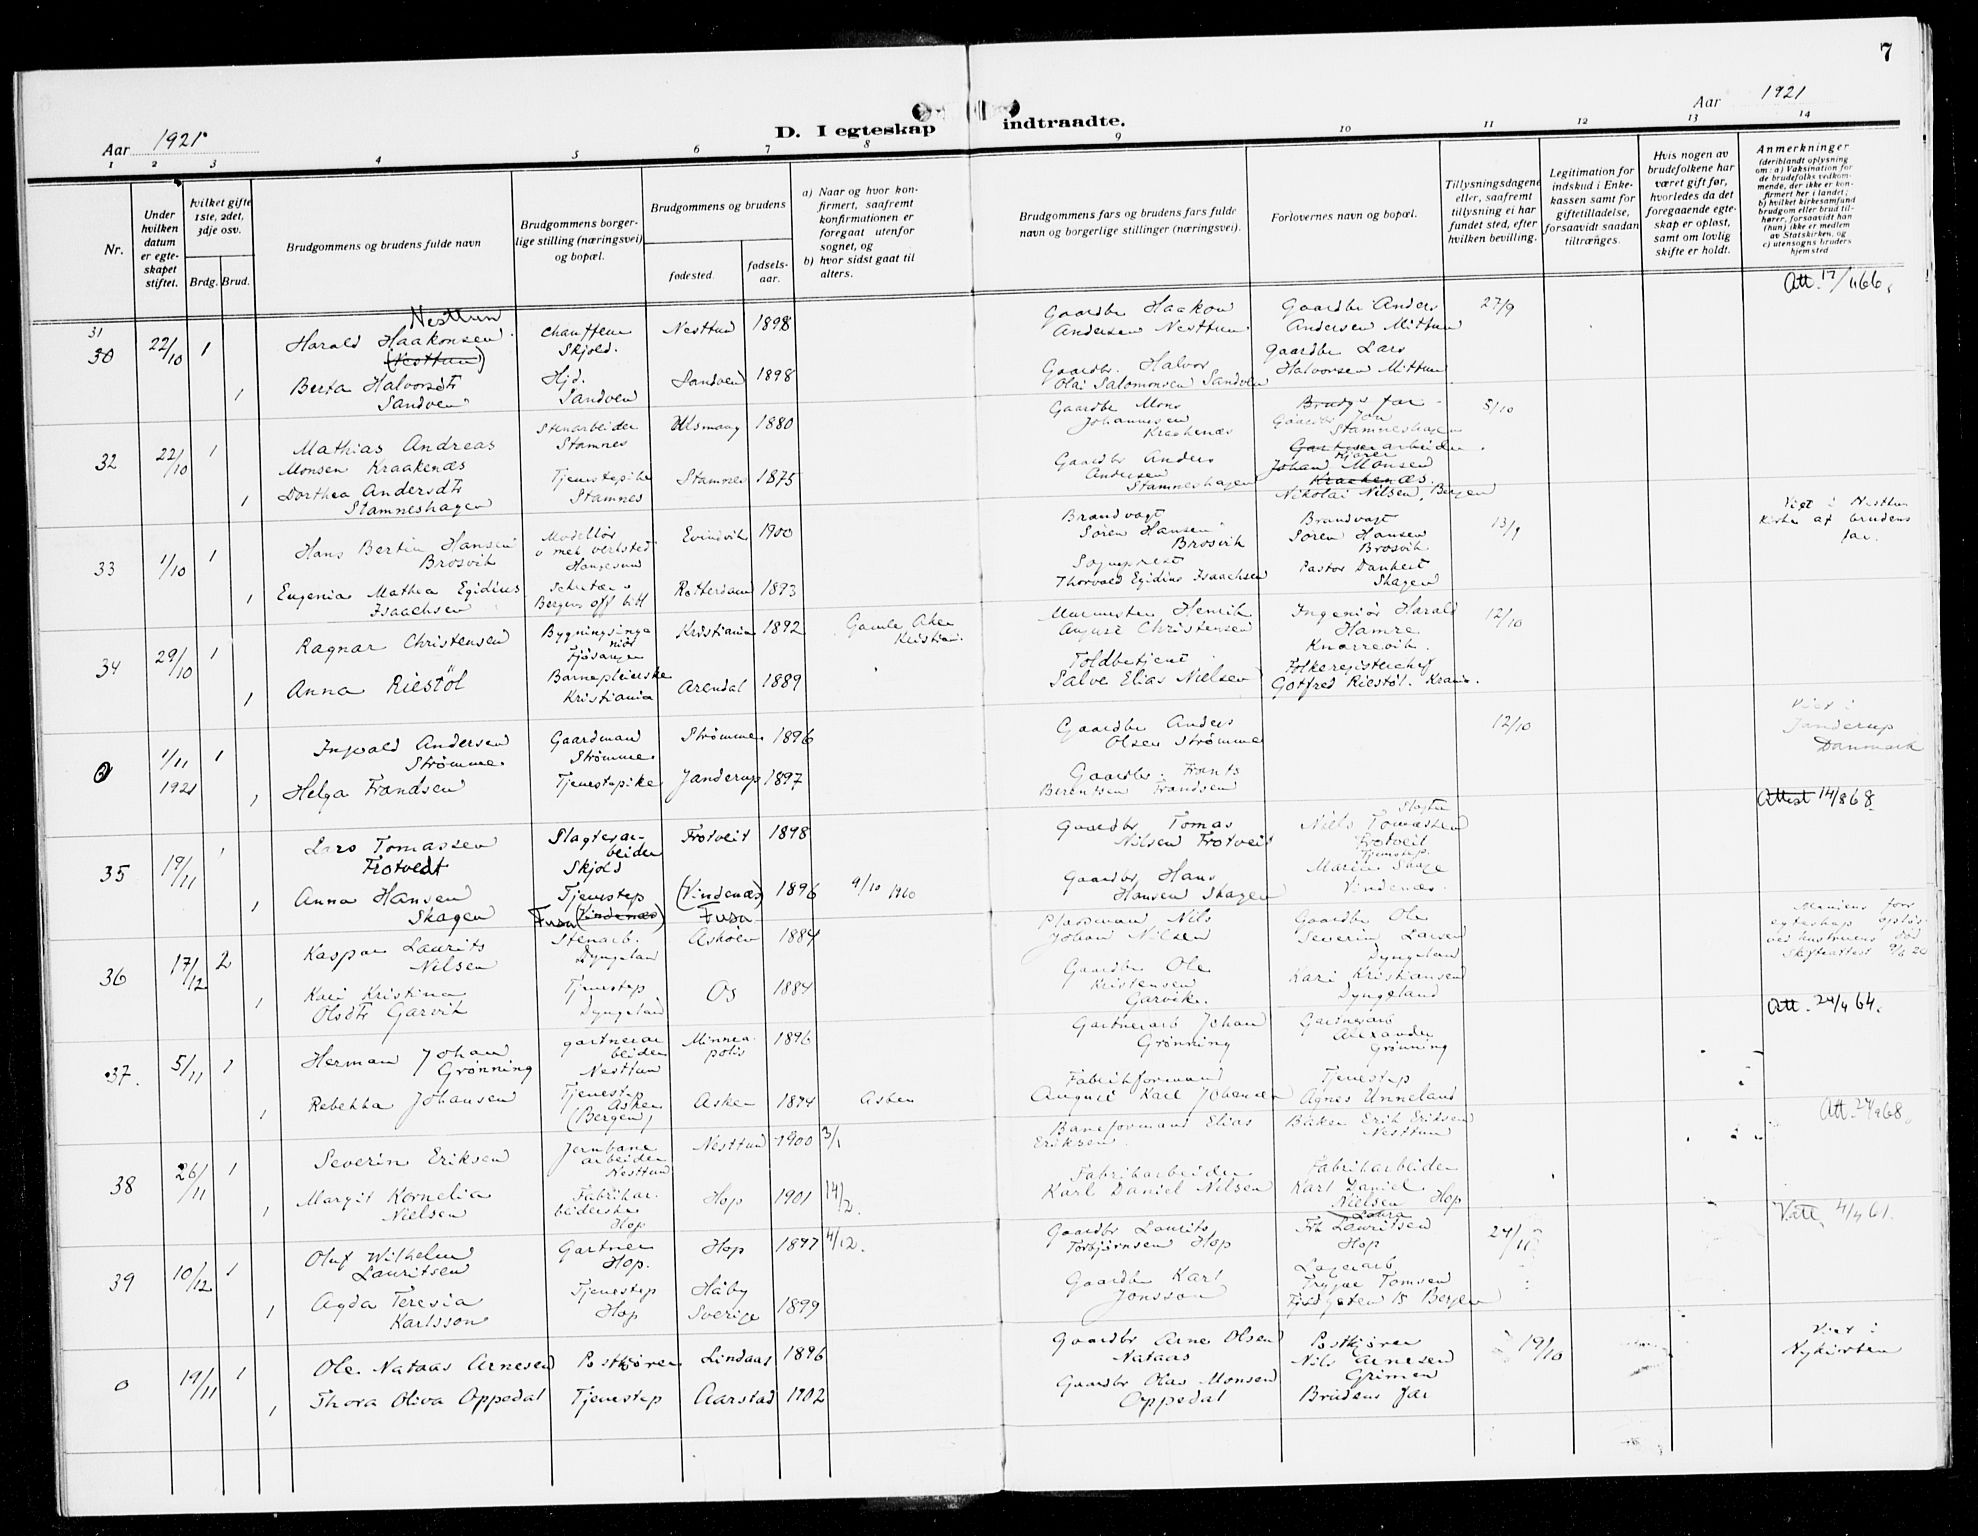 7
Aar 1921
D. I egteskap indtraadte.
Aar 1921
1 2 3 4 5 6 7 8 9 10 11 12 13 14
Nr.
Under hvilken datum er egteskapet stiftet.
hvilket gifte 1ste, 2det, 3dje osv.
Brdg. Brud.
Brudgommens og brudens fulde navn
Brudgommens borgerlige stilling (næringsvei) og bopæl.
Brudgommens og brudens
fødested.
fødselsaar.
a) Naar og hvor konfirmert, saafremt konfirmationen er foregaat utenfor sognet, og
b) hvor sidst gaat til alters.
Brudgommens fars og brudens fars fulde navn og borgerlige stillinger (næringsvei).
Forlovernes navn og bopæl.
Tillysningsdagene eller, saafremt tillysning ei har fundet sted, efter hvilken bevilling.
Legitimation for indskud i Enkekassen samt for giftetilladelse, forsaavidt saadan tiltrænges.
Hvis nogen av brudefolkene har været gift før, hvorledes da det foregaaende egteskap er opløst, samt om lovlig skifte er holdt.
Anmerkninger
(deriblandt oplysning om: a) Vaksination for de brudefolks vedkommende, der ikke er konfirmert her i landet; b) hvilket kirkesamfund brudgom eller brud tilhører, forsaavidt han (hun) ikke er medlem av Statskirken, og c) utensogns bruders hjemsted
31
30 22/10 1
Nesttun
Harald Haakonsen
(Nesttun)
Chauffeur
Skjold.
Nesttun 1898
Gaardbr Haakon
Andersen Nesttun
Gaardbr Anders
Andersen Mittun
27/9
Att. 17/11 66.
1
Berta Halvorsdtr
Sandven
Hjd.
Sandven
Sandven 1898
Gaardbr. Halvor
Olai Salomonsen Sandven
Gaardbr Lars
Halvorsen Mittun
32 22/10 1
Mathias Andreas
Monsen Kraakenæs
Stenarbeider
Stamnes
Ulsmaag 1880
Gaardbr Mons
Johannesen
Kraakenæs
Brudgs far
Gaardbr Jon
Stamneshagen
5/10
1
Dorthea Andersdtr
Stamneshagen
Tjenestepike
Stamnes
Stamnes 1875
Gaardbr Anders
Andersen
Stamneshagen
Johan Monsen
Kraakenæs.
Nikolai Nilsen, Bergen
33 1/10 1
Hans Bertin Hansen
Brosvik
Modellør
v mek verksted
Haugesund
Evindvik 1900
Brandvagt
Søren Hansen
Brosvik
Brandvagt
Søren Hansen
Brosvik
13/9
Viet i Nesttun
Kirke af brudens
far.
1
Eugenia Mathea Egidius
Isaachsen
Sekretær
Bergens off bibl
Rotterdam 1893
Sogneprest
Thorvald Egidius Isaachsen
Pastor Dankert
Skagen
34 29/10 1
Ragnar Christensen
Bygningsingeniør
Fjøsanger
Kristiania 1892
Gamle Aker
Kristian.
Murmester Henrik
August Christensen
Ingeniør Harald
Hamre
Knarrevik.
12/10
1
Anna Riestöl
Barnepleierske
Kristiania
Arendal 1889
Toldbetjent
Salve Elias Nielsen
Folkeregisterchef
Gotfred Riestöl. Krania.
0 1/11 1921 1
Ingvald Andersen
Strømme.
Gaardmand
Strømme.
Strømme 1896
Gaardbr Anders
Olsen Strømme
12/10
Viet i
Janderup
Danmark
1
Helga Frandsen
Tjenestepike
Janderup 1897
Gaardbr. Frants
Berentsen Frandsen
35 19/11 1
Lars Tomassen
Frotvedt
Slagterarbeider
Skjold
Frotveit 1898
Gaardbr Tomas
Nilsen Frotveit
Slagter
Niels Tomassen
Frotveit
Attest 14/8 68.
1
Anna Hansen
Skagen
Tjenestep
Fusa (Vindenæs)
(Vindenæs)
Fusa
1896
9/10 1960
Gaardbr Hans
Hansen Skagen
Tjenestep.
Vindenæs.
36 17/12 2
Kaspar Laurits
Nilsen
Stenarb.
Dyngeland
Askøen 1884
Pladsmand Nils
Johan Nilsen
Gaardbr Ole
Severin Larsen
Dyngeland
Mandens forr
egteskap opløst
ved hustruens død
Skifteattest 9/6 20
1
Kari Kristina
Olsdtr Garvik
Tjenestep
Dyngeland
Os 1884
Gaardbr Ole
Kristensen
Garvik.
Kari Kristiansen
Dyngeland
37. 5/11 1
Herman Johan
Grønning
gartnerarbeider
Nesttun
Minneapolis
1896
Gartnerarb Johan
Grønning
Gartnerarb
Alexander
Grønning
Att. 24/4 64.
1
Rebekka Johansen
Tjenestep
Asker
(Bergen)
Asker 1894
Asker
Fabrikformand
August Karl Johansen
Tjenestep
Agnes Unneland
38 26/11 1
Severin Eriksen
Jernbanearbeider
Nesttun
Nesttun 1900 3/1
Baneformand Elias
Eriksen
Baker Erik Eriksen
Nesttun
Att. 24/9 68.
1
Margit Kornelia
Nielsen
Fabrikarbeiderske
Hop
Hop 1901 14/2.
Fabrikarbeider
Karl Daniel Nilsen
Fabrikarbeider
Karl Daniel
Nielsen Hop
39 10/12 1
Oluf Wilhelm
Lauritsen
Gartner
Hop.
Hop 1897 4/12.
Gaardbr Laurits
Torbjørnsen Hop
Laura
Frk Lauritsen
Hop
24/11
4/4 61.
1
Agda Teresia
Karlsson
Tjenestep
Hop
Håby
Sverige 1899
Gaardbr Karl
Jonsson
Lagerarb
Trygve Tomsen
15 Bergen
0 19/11 1
Ole Nataas Arnesen
Postkjører
Lindaas 1896
Gaardbr Arne Olsen
Nataas
Postkjører
Nils Arnesen
Grimen
19/10
Viet i
Nykirken
1
Thora Oliva Oppedal
Tjenestep
Aarstad 1902
Gaardbr Olas Monsen
Oppedal
Brudens far